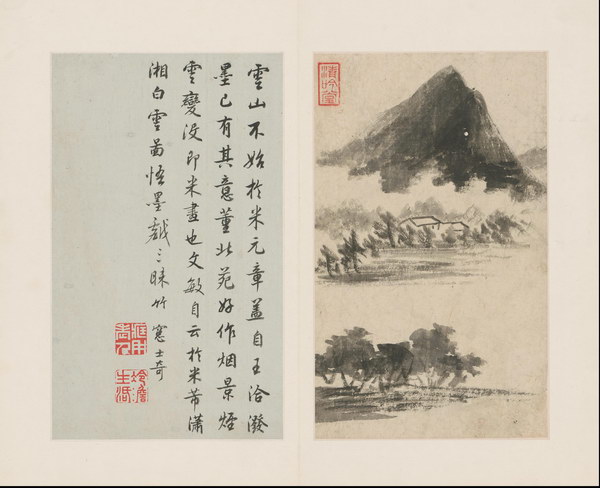 雲山不始於米元章蓋自王洽潑
墨已有其意董北苑好作烟景煙
雲變没即米畫也文敏自云於米芾瀟
湘白雲啚悟墨戲三昧竹窓士奇
冷澹生活